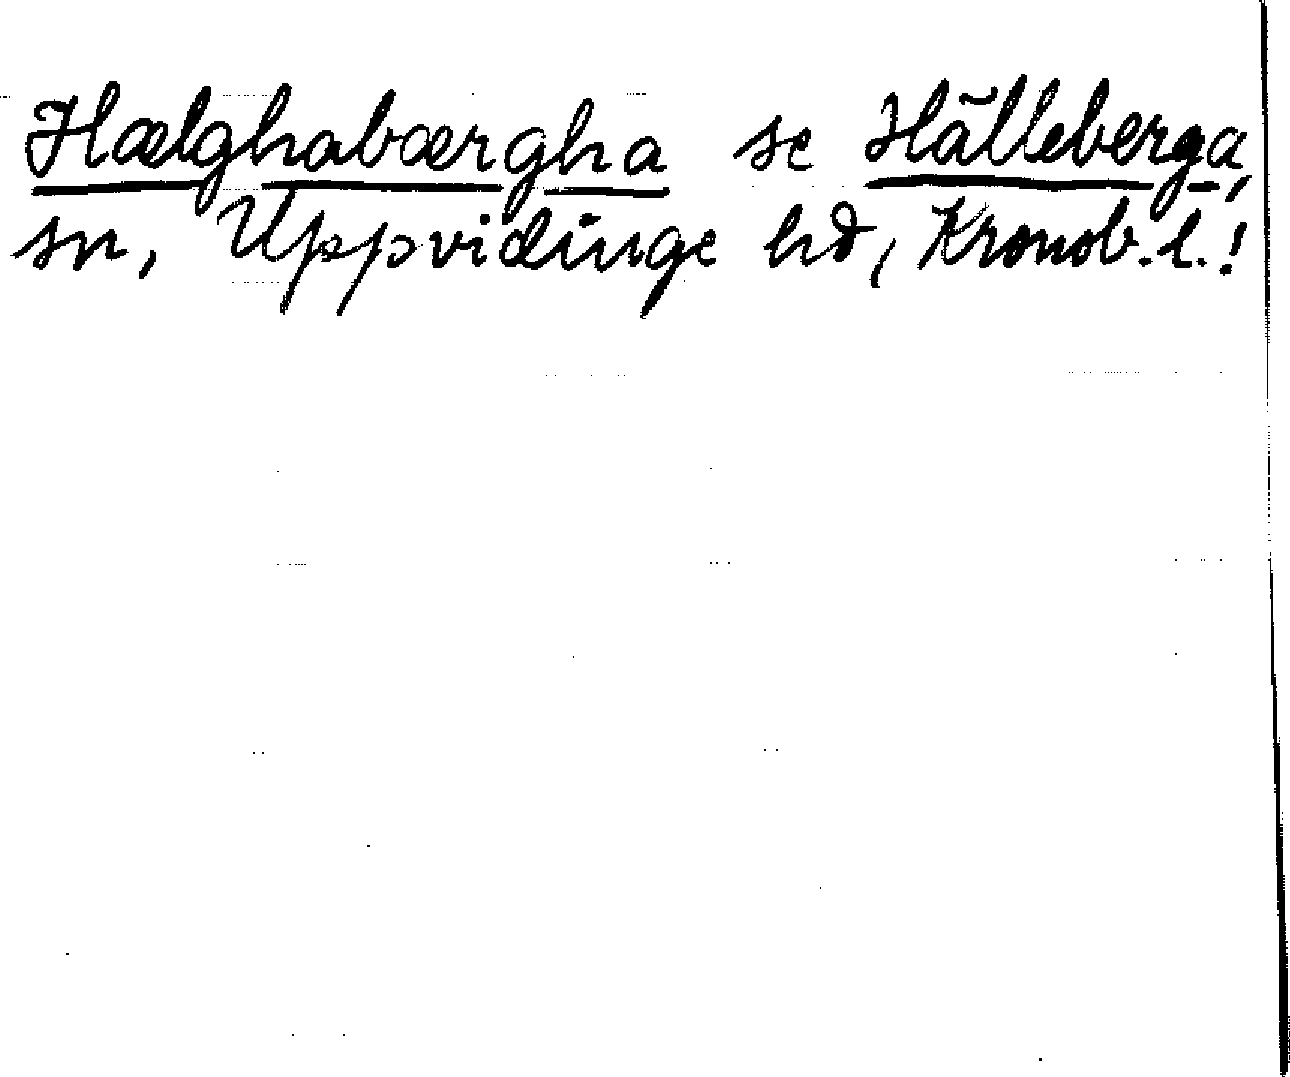 Hælghabærgha se Hälleberga,
sn, Uppvidinge hd, Kronob. l.!